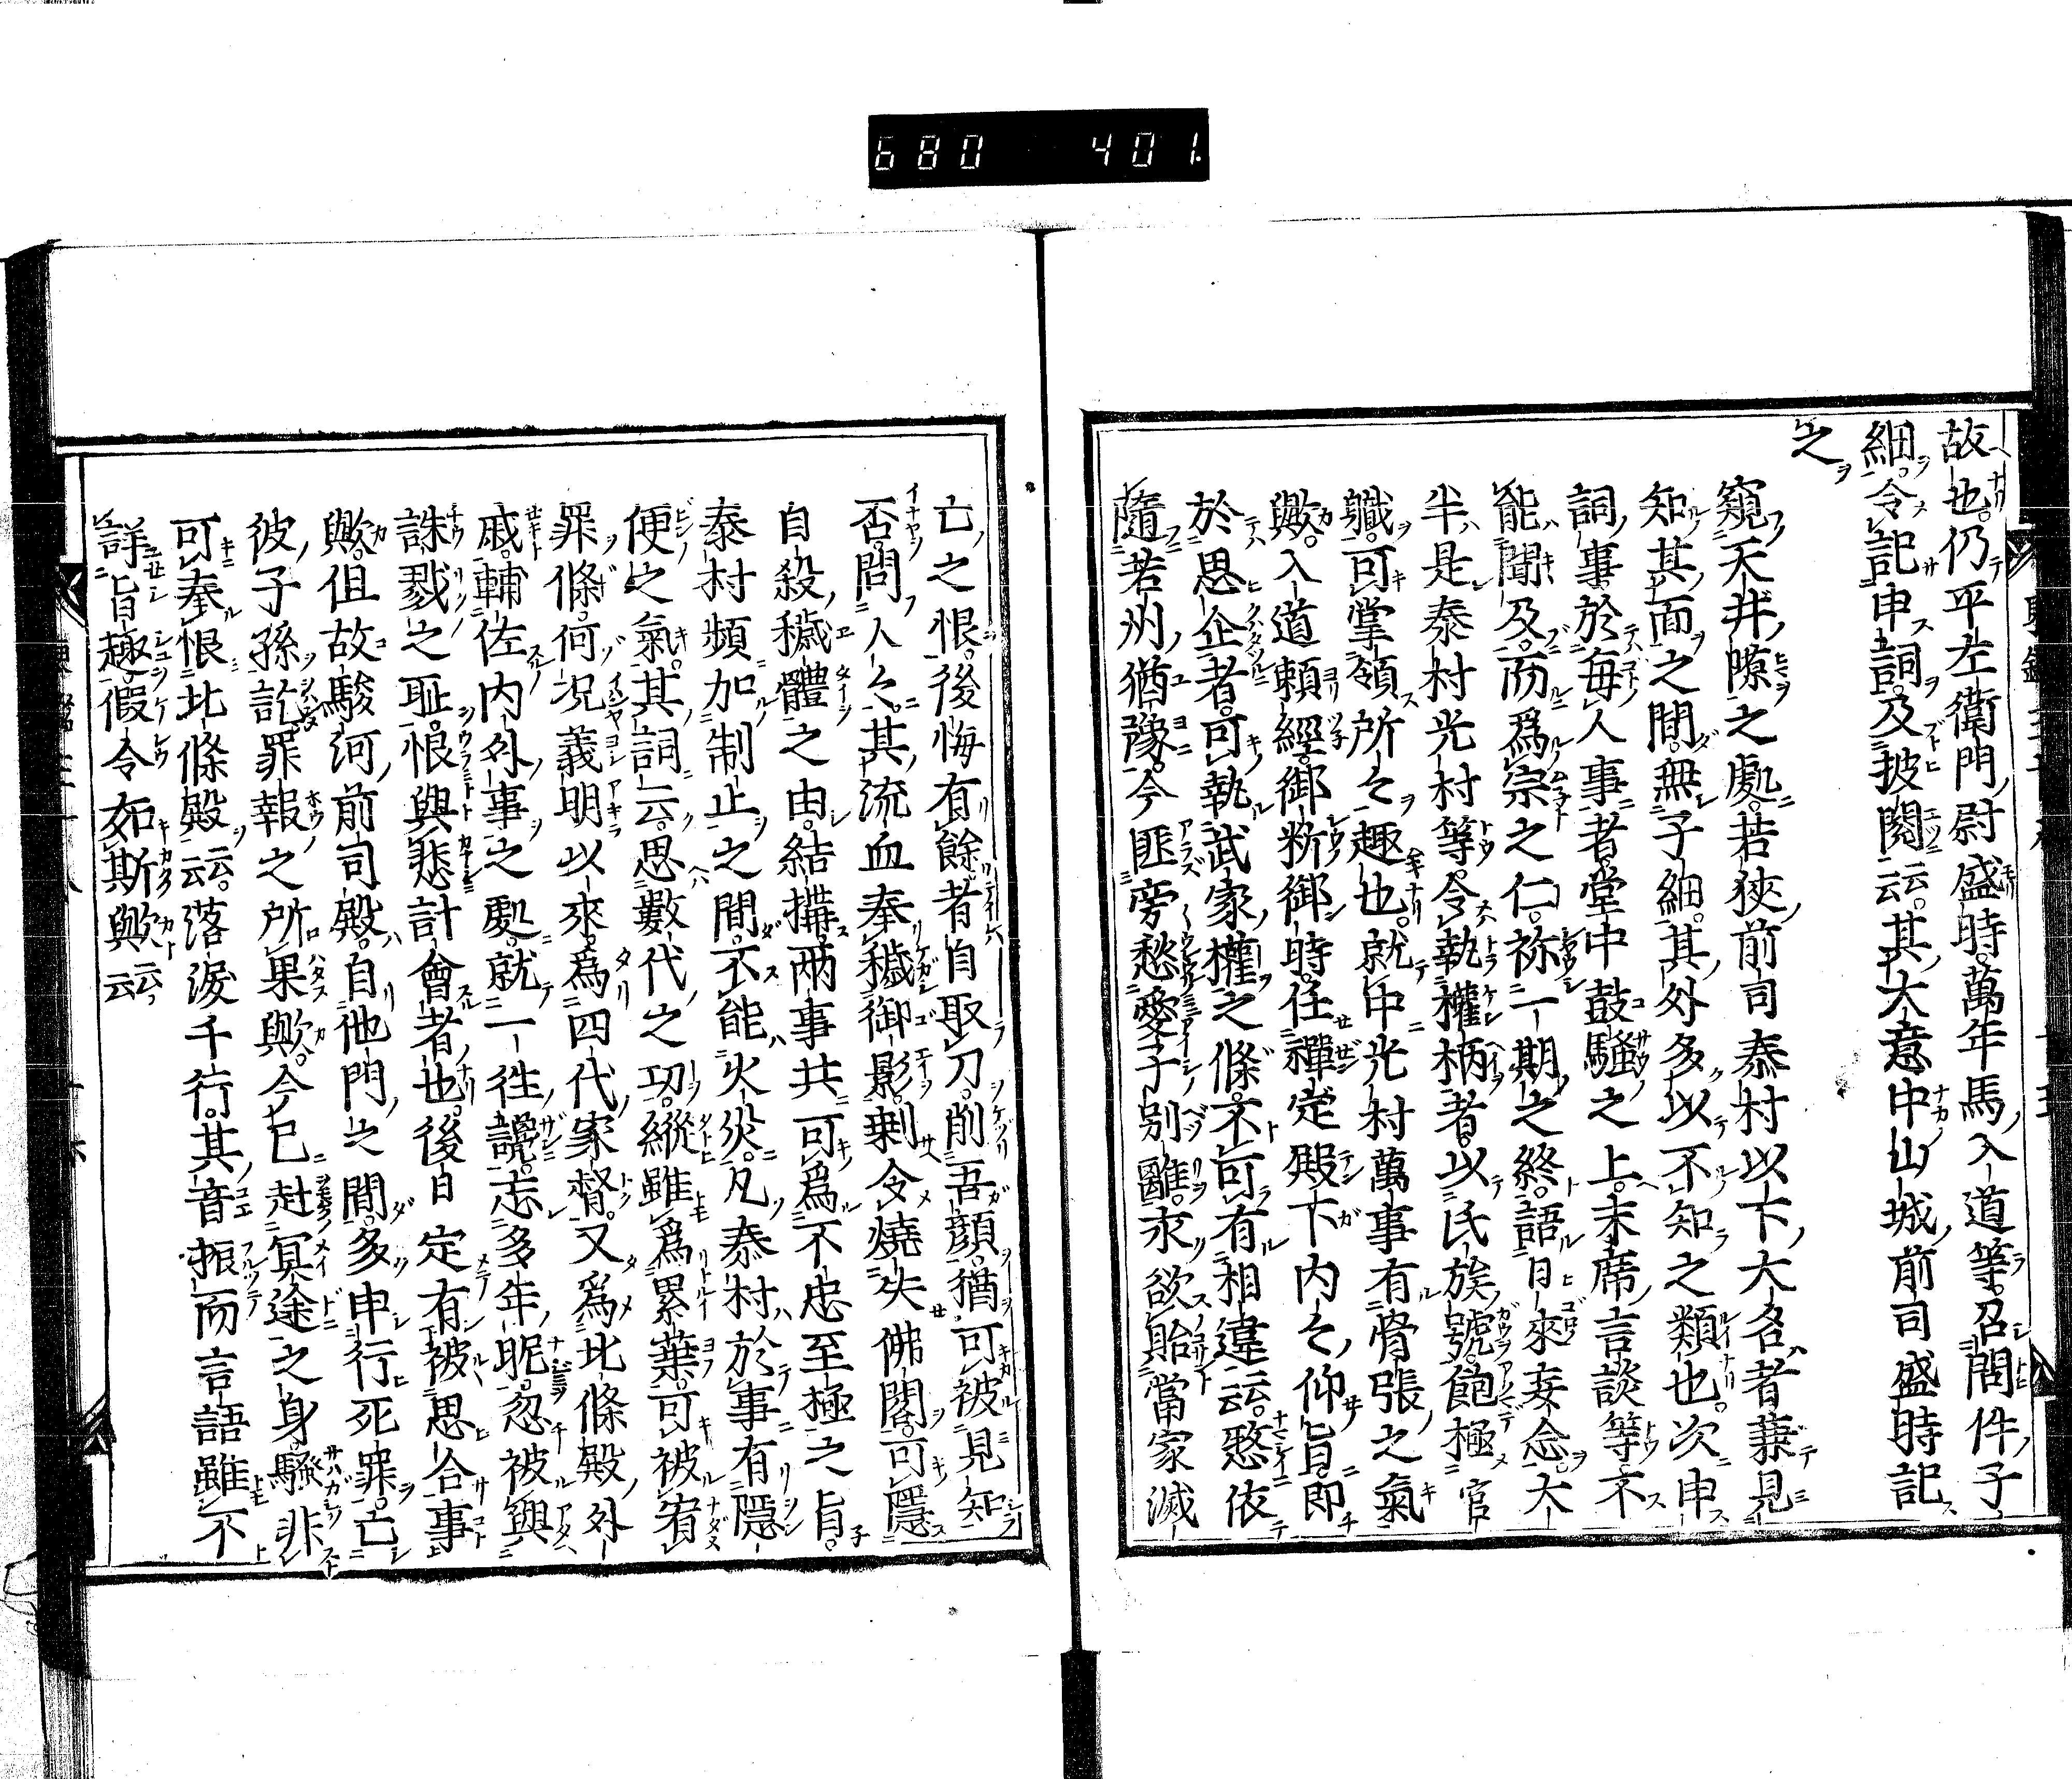 680 401.
故也。仍平左衛門尉盛時。萬年馬入道等。召問件子
細。令記申詞。及披閲云云。其大意中山城前司盛時記
之
窺天井隙之處。若狹前司泰村以下大名者兼見
知其面之間。無子細。其外多以不知之類也。次申
詞事。於毎人事者。堂中鼓騒之上。末席言談等不
能聞及。而爲宗之仁。称一期之終。語日來妄念。大
半是泰村光村等。令執權柄者。以氏族號。飽極官
職。可掌領所々趣也。就中光村萬事有骨張之氣
歟。入道頼經御料御時。任禪定殿下内々仰旨。即
於思企者。可執武家權之條。不可有相違云云。憖依
隨若州猶豫。今匪旁愁愛子別離。永欲貽當家滅
亡之恨。後悔有餘者。自取刀。削吾顔。猶可被見知
否。問人々。其流血奉穢御影。剩令燒失佛閣。可隱
自殺穢體之由。結搆。兩事共可爲不忠至極之旨。
泰村頻加制止之間。不能火災。凡泰村於事有隱
便之氣。其詞云。思數代之功。縱雖爲累葉。可被宥
罪條。何况義明以來。爲四代家督。又爲北條殿外
戚。輔佐内外事之處。就一往讒。志多年昵。忽被與
誅戮之耻。恨與悲計會者也。後日定有被思合事
歟。但故駿河前司殿。自他門之間。多申行死罪。亡
彼子孫訖。罪報之所果歟。今已赴冥途之身。騒非
可奉恨北條殿云云。落涙千行。其音振而言語雖不
詳。旨趣。假令如斯歟云云